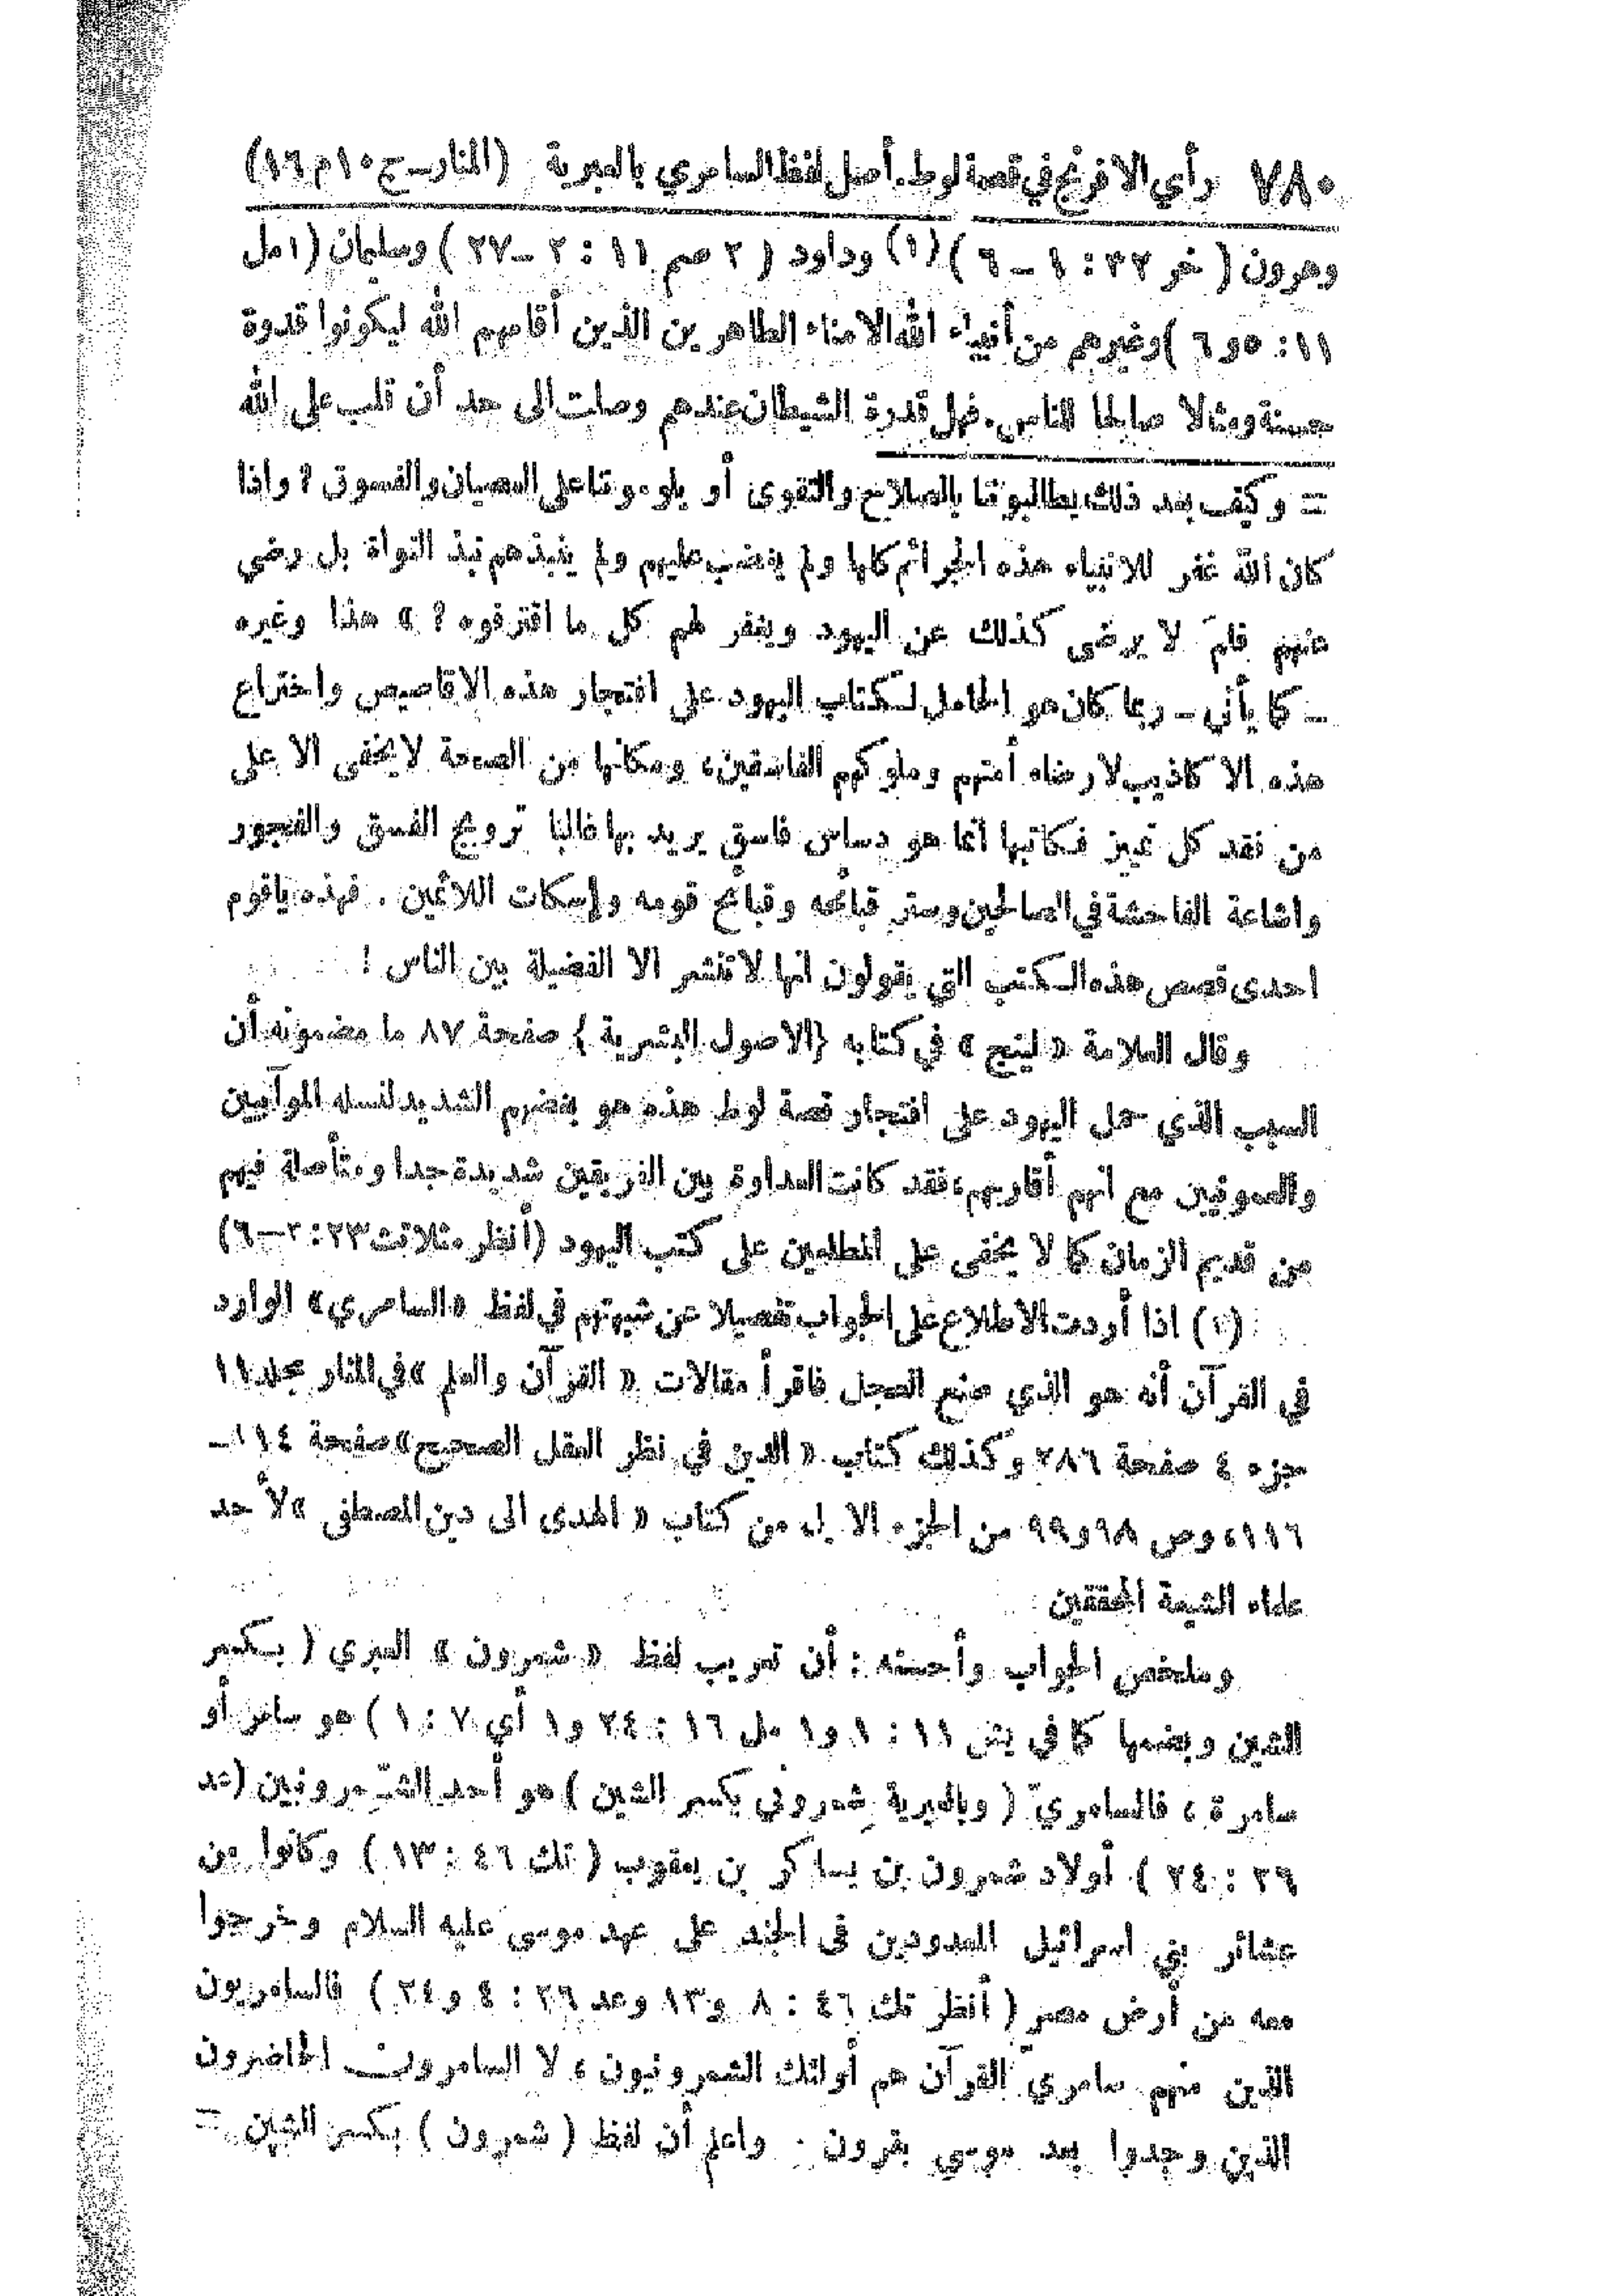 ٧٨٠ رأي الافرنج في قصة لوط. أصل لفظ السامري بالعبرية (المنار ـ ج ١٠ م ١٦)
وهرون ( خر ٣٢ : ١ ـ ٦ ) (١) وداود ( ٢ صم ١١ : ٢ ـ ٢٧ ) وسليمان ( ١ مل
١١ : ٥ و ٦ ) وغيرهم من أنبياء الله الامناء الطاهرين الذين أقامهم الله ليكونوا قدوة
حسنة ومثالا صالحا للناس. فهل قدرة الشيطان عندهم وصلت الى حد أن قلب على الله
= وكيف بعد ذلك يطالبوننا بالصلاح والتقوى أو يلوموننا على العصيان والفسوق ؟ واذا
كان الله غفر للانبياء هذه الجرائم كلها ولم يغضب عليهم ولم ينبذهم نبذ النواة بل رضي
عنهم فلمَ لا يرضى كذلك عن اليهود ويغفر لهم كل ما اقترفوه ؟ » هذا وغيره
ـ كما يأتي ـ ربما كان هو الحامل لكتاب اليهود على افتجار هذه الاقاصيص واختراع
هذه الاكاذيب لارضاء أمتهم وملوكهم الفاسقين، ومكانها من الصحة لا يخفى الا على
من فقد كل تمييز فكاتبها انما هو دساس فاسق يريد بها غالبا ترويج الفسق والفجور
واشاعة الفاحشة في الصالحين وستر قبائحه وقبائح قومه وإسكات اللائمين . فهذه ياقوم
احدى قصص هذه الكتب التي يقولون انها لا تنشر الا الفضيلة بين الناس !
وقال العلامة « لينج » في كتابه {الاصول البشرية } صفحة ٨٧ ما مضمونه أن
السبب الذي حمل اليهود على افتجار قصة لوط هذه هو بغضهم الشديد لنسله الموآبيين
والعمونيين مع انهم أقاربهم، فقد كانت العداوة بين الفريقين شديدة جدا ومتأصلة فيهم
من قديم الزمان كما لا يخفى على المطلعين على كتب اليهود (أنظر مثلا تث ٢٣ : ٣ ـ ٦)
(١) اذا أردت الاطلاع على الجواب تفصيلا عن شبهتهم في لفظ «السامري» الوارد
في القرآن أنه هو الذي صنع العجل فاقرأ مقالات « القرآن والعلم » في المنار مجلد ١١
جزء ٤ صفحة ٢٨٦ وكذلك كتاب « الدين في نظر العقل الصحيح» صفحة ١١٤ ـ
١١٦، وص ٩٨ و ٩٩ من الجزء الاول من كتاب « الهدى الى دين المصطفى » لأحد
علماء الشيعة المحققين
وملخص الجواب وأحسنه : أن تعريب لفظ « شمرون » العبري ( بكسر
الشين وبضمها كما في يش ١١ : ١ و ١ مل ١٦ : ٢٤ و ١ أي ٧ : ١ ) هو سامر أو
سامرة ، فالسامريّ ( وبالعبرية شِمروني بكسر الشين ) هو أحد الشِّمرونيين (عد
٢٦ : ٢٤ ) أولاد شمرون بن يساكر بن يعقوب ( تك ٤٦ : ١٣ ) وكانوا من
عشائر بني اسرائيل المعدودين في الجند على عهد موسى عليه السلام وخرجوا
معه من أرض مصر ( أنظر تك ٤٦ : ٨ و ١٣ وعد ٢٦ : ٤ و ٢٤ ) فالسامريون
الذين منهم سامريّ القرآن هم أولئك الشمرونيون ، لا السامرون الحاضرون
الذين وجدوا بعد موسى بقرون . واعلم أن لفظ ( شمرون ) بكسر الشين =